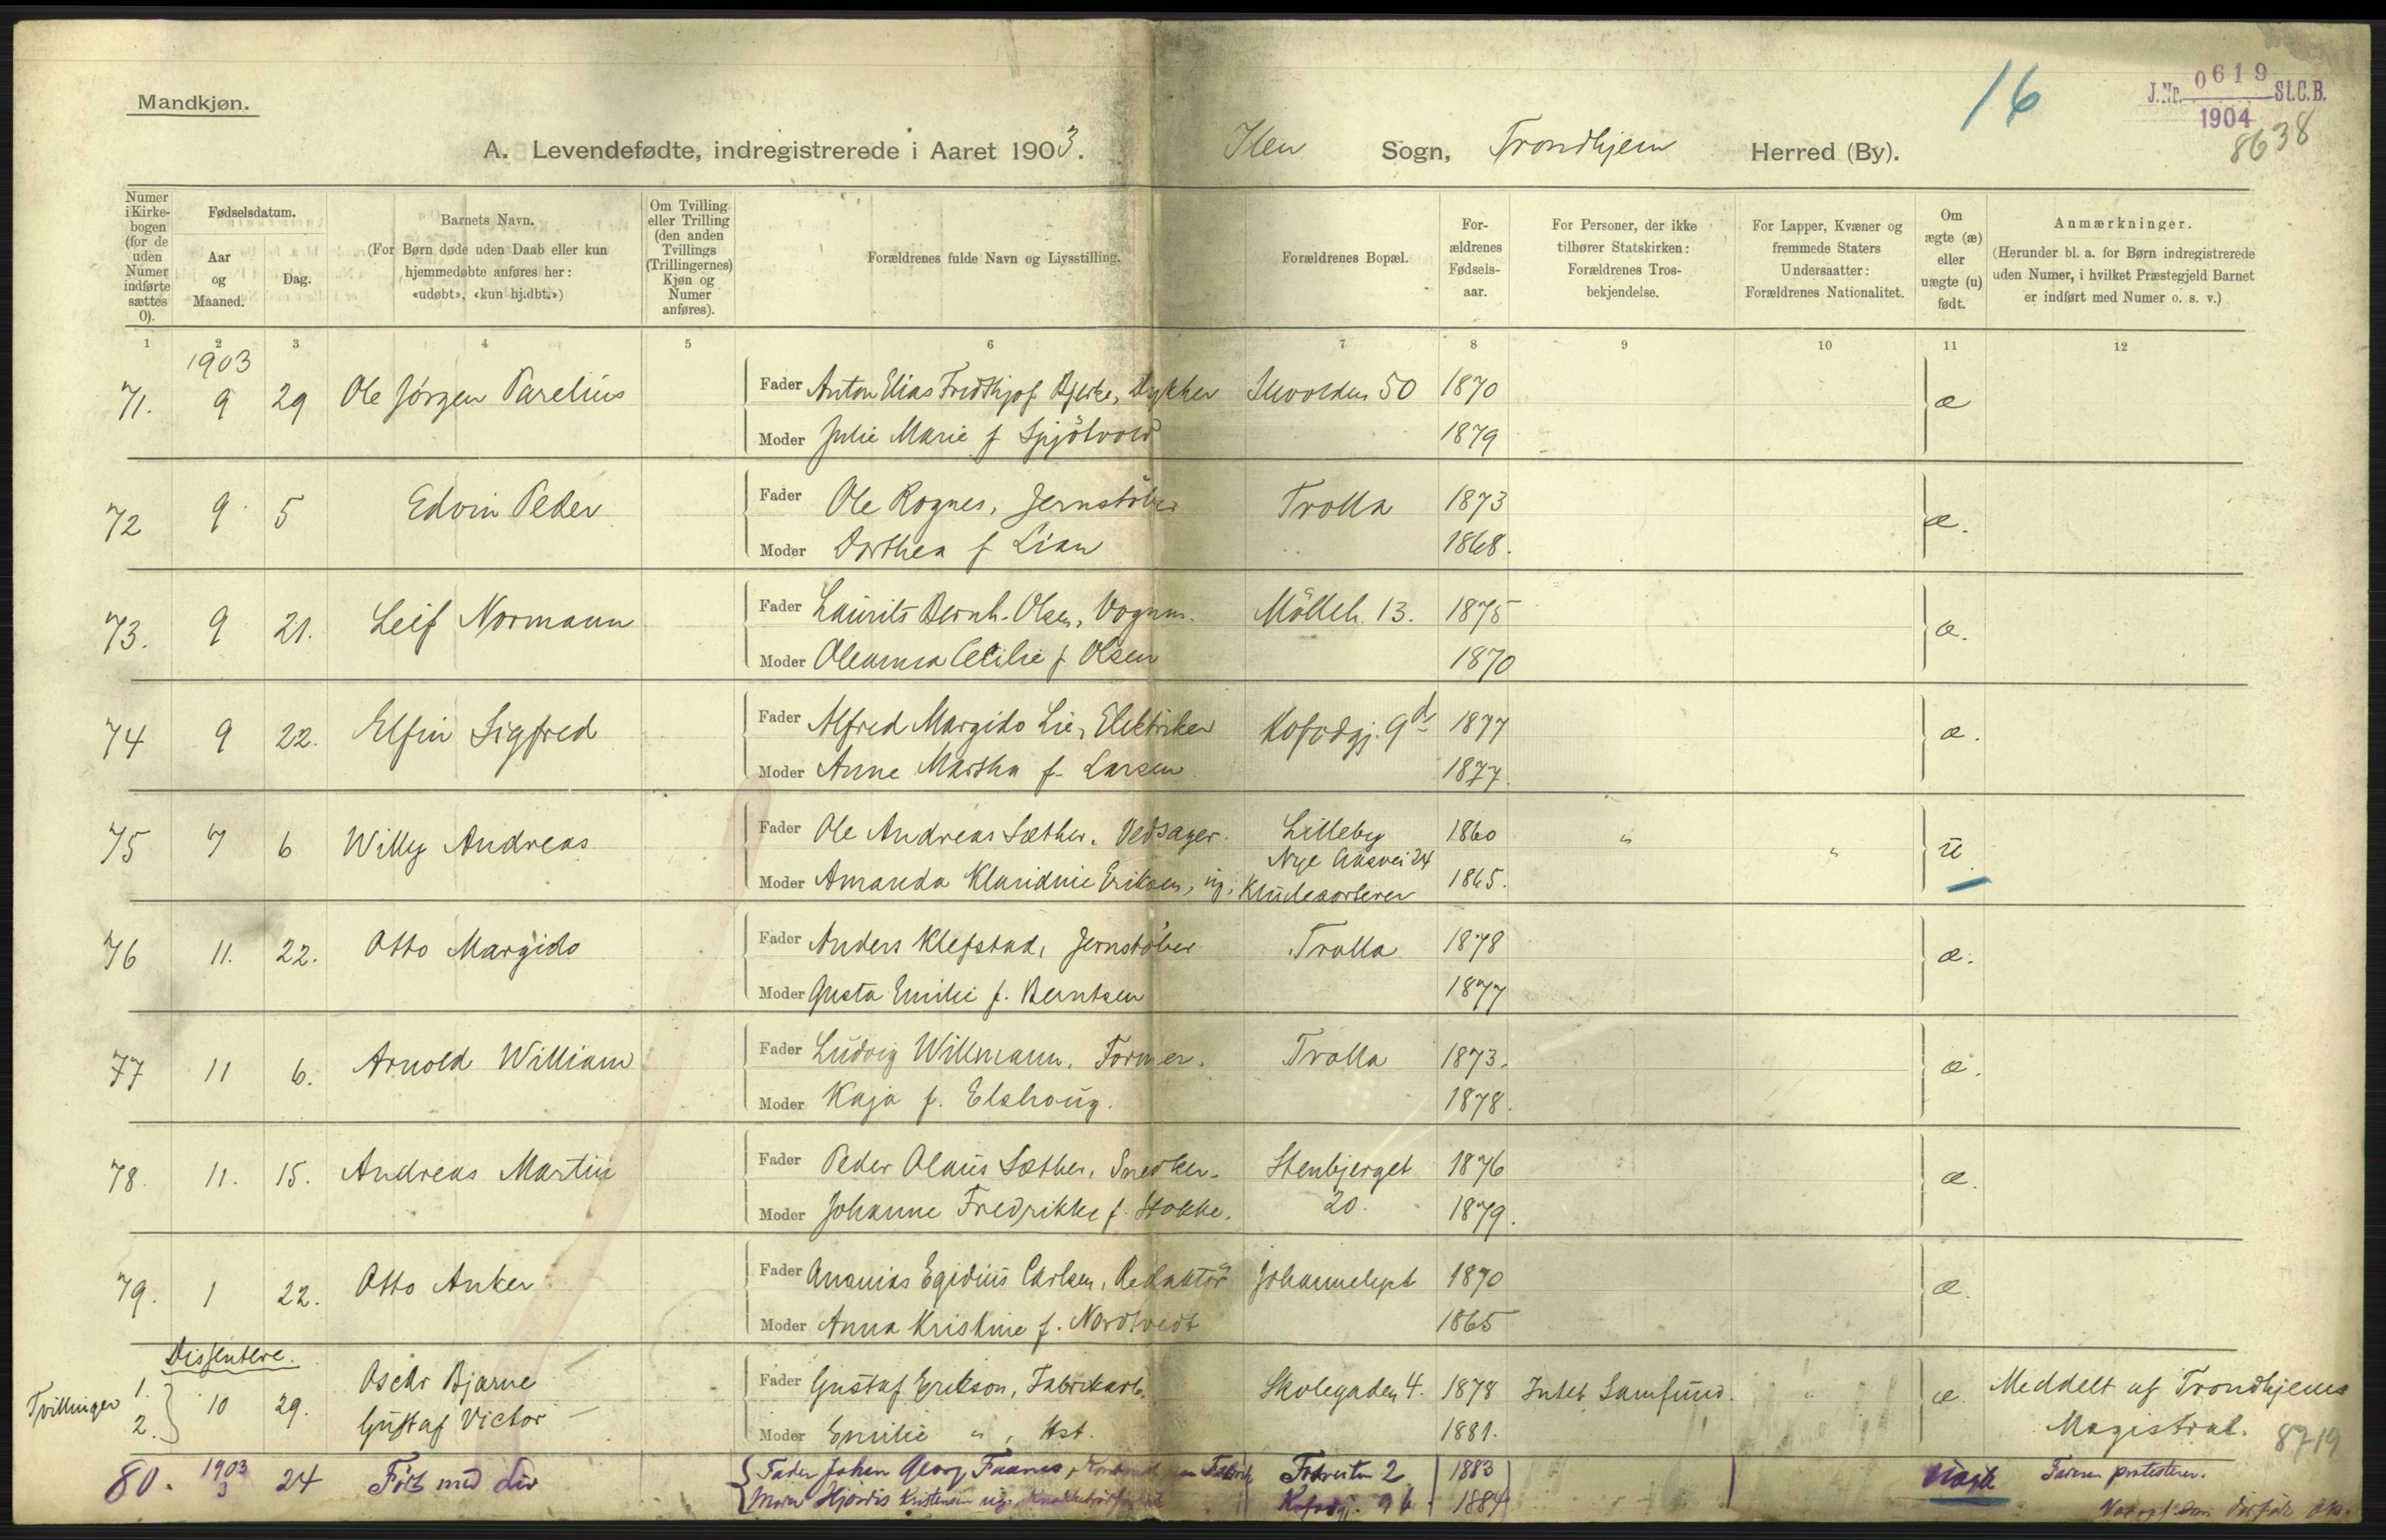 Mandkjøn.
16
J.Nr. 0619 St.C.B.
1904
8638
A. Levendefødte, indregistrerede i Aaret 1903. Ilen Sogn, Trondhjem Herred (By).
Numer i Kirkebogen (for de uden Numer indførte sættes 0).
Fødselsdatum.
Aar og Maaned.
Dag.
Barnets Navn.
(For Børn døde uden Daab eller kun hjemmedøbte anføres her: «udøbt», «kun hj.dbt.»)
Om Tvilling eller Trilling (den anden Tvillings (Trillingernes) Kjøn og Numer anføres).
Forældrenes fulde Navn og Livsstilling.
Forældrenes Bopæl.
Forældrenes Fødselsaar.
For Personer, der ikke tilhører Statskirken: Forældrenes Trosbekjendelse.
For Lapper, Kvæner og fremmede Staters Undersaatter: Forældrenes Nationalitet.
Om ægte (æ) eller uægte (u) født.
Anmærkninger.
(Herunder bl. a. for Børn indregistrerede uden Numer, i hvilket Præstegjeld Barnet er indført med Numer o. s. v.)
1 2 3 4 5 6 7 8 9 10 11 12
1903
71. 9 29 Ole Jörgen Parelius Fader Anton Elias Fredthjof Bjerke, Dykker Ilevolden 50 1870 æ
Moder Julie Marie f Spjötvold 1879
72 9 5 Edvin Peder Fader Ole Rognes, Jernstöber Trolla 1873 æ.
Moder Dorthea f Lian 1868.
73. 9 21. Leif Normann Fader Laurits Bernh. Olsen, Vognm. Mölleb. 13. 1875 æ.
Moder Oleanna Cecilie f Olsen 1870
74 9 22. Elfin Sigfred Fader Alfred Margido Lie, Elektriker Kofodgj. 9d 1877 æ.
Moder Anne Martha f. Larsen 1877.
75 7 6 Willy Andreas Fader Ole Andreas Sæther. Vedsager. Lilleby 1860 " " u.
Moder Amanda Klaridnie Eriksen, ug. Nye Aasvei 24 Kludesorterer 1865.
76 11. 22. Otto Margido Fader Anders Klefstad, Jernstöber Trolla 1878 æ.
Moder Gusta Emilie f. Berntsen 1877
77 11 6. Arnold William Fader Ludvig Willmann. Former. Trolla 1873. æ.
Moder Kaja f. Elshoug. 1878.
78. 11. 15. Andreas Martin Fader Peder Olaus Sæther, Snedker. Stenbjerget 1876 æ.
Moder Johanne Fredrikke f. Stokke. 20. 1879.
79. 1 22. Otto Anker Fader Ananias Egidius Carlsen, Redaktör 1870 æ.
Moder Anna Kristine f. Nordtvedt 1865
Dissentere.
Tvillinger 1. 10 29. Oscar Bjarne Fader Gustaf Erikson, Fabrikarb. Skolegaden 4. 1878 Intet Samfund. " æ Meddelt af Trondhjems
2. Gustaf Victor Moder Emilie ", Hst. 1881. Magistrat. 8719
80. 1903 3 24 Födt med Liv Fader Johan Georg Faanes, 1883 Uægte Faren protesterer.
Moder Hjördis Kristensen ug. Kofodgj. 9b 1884